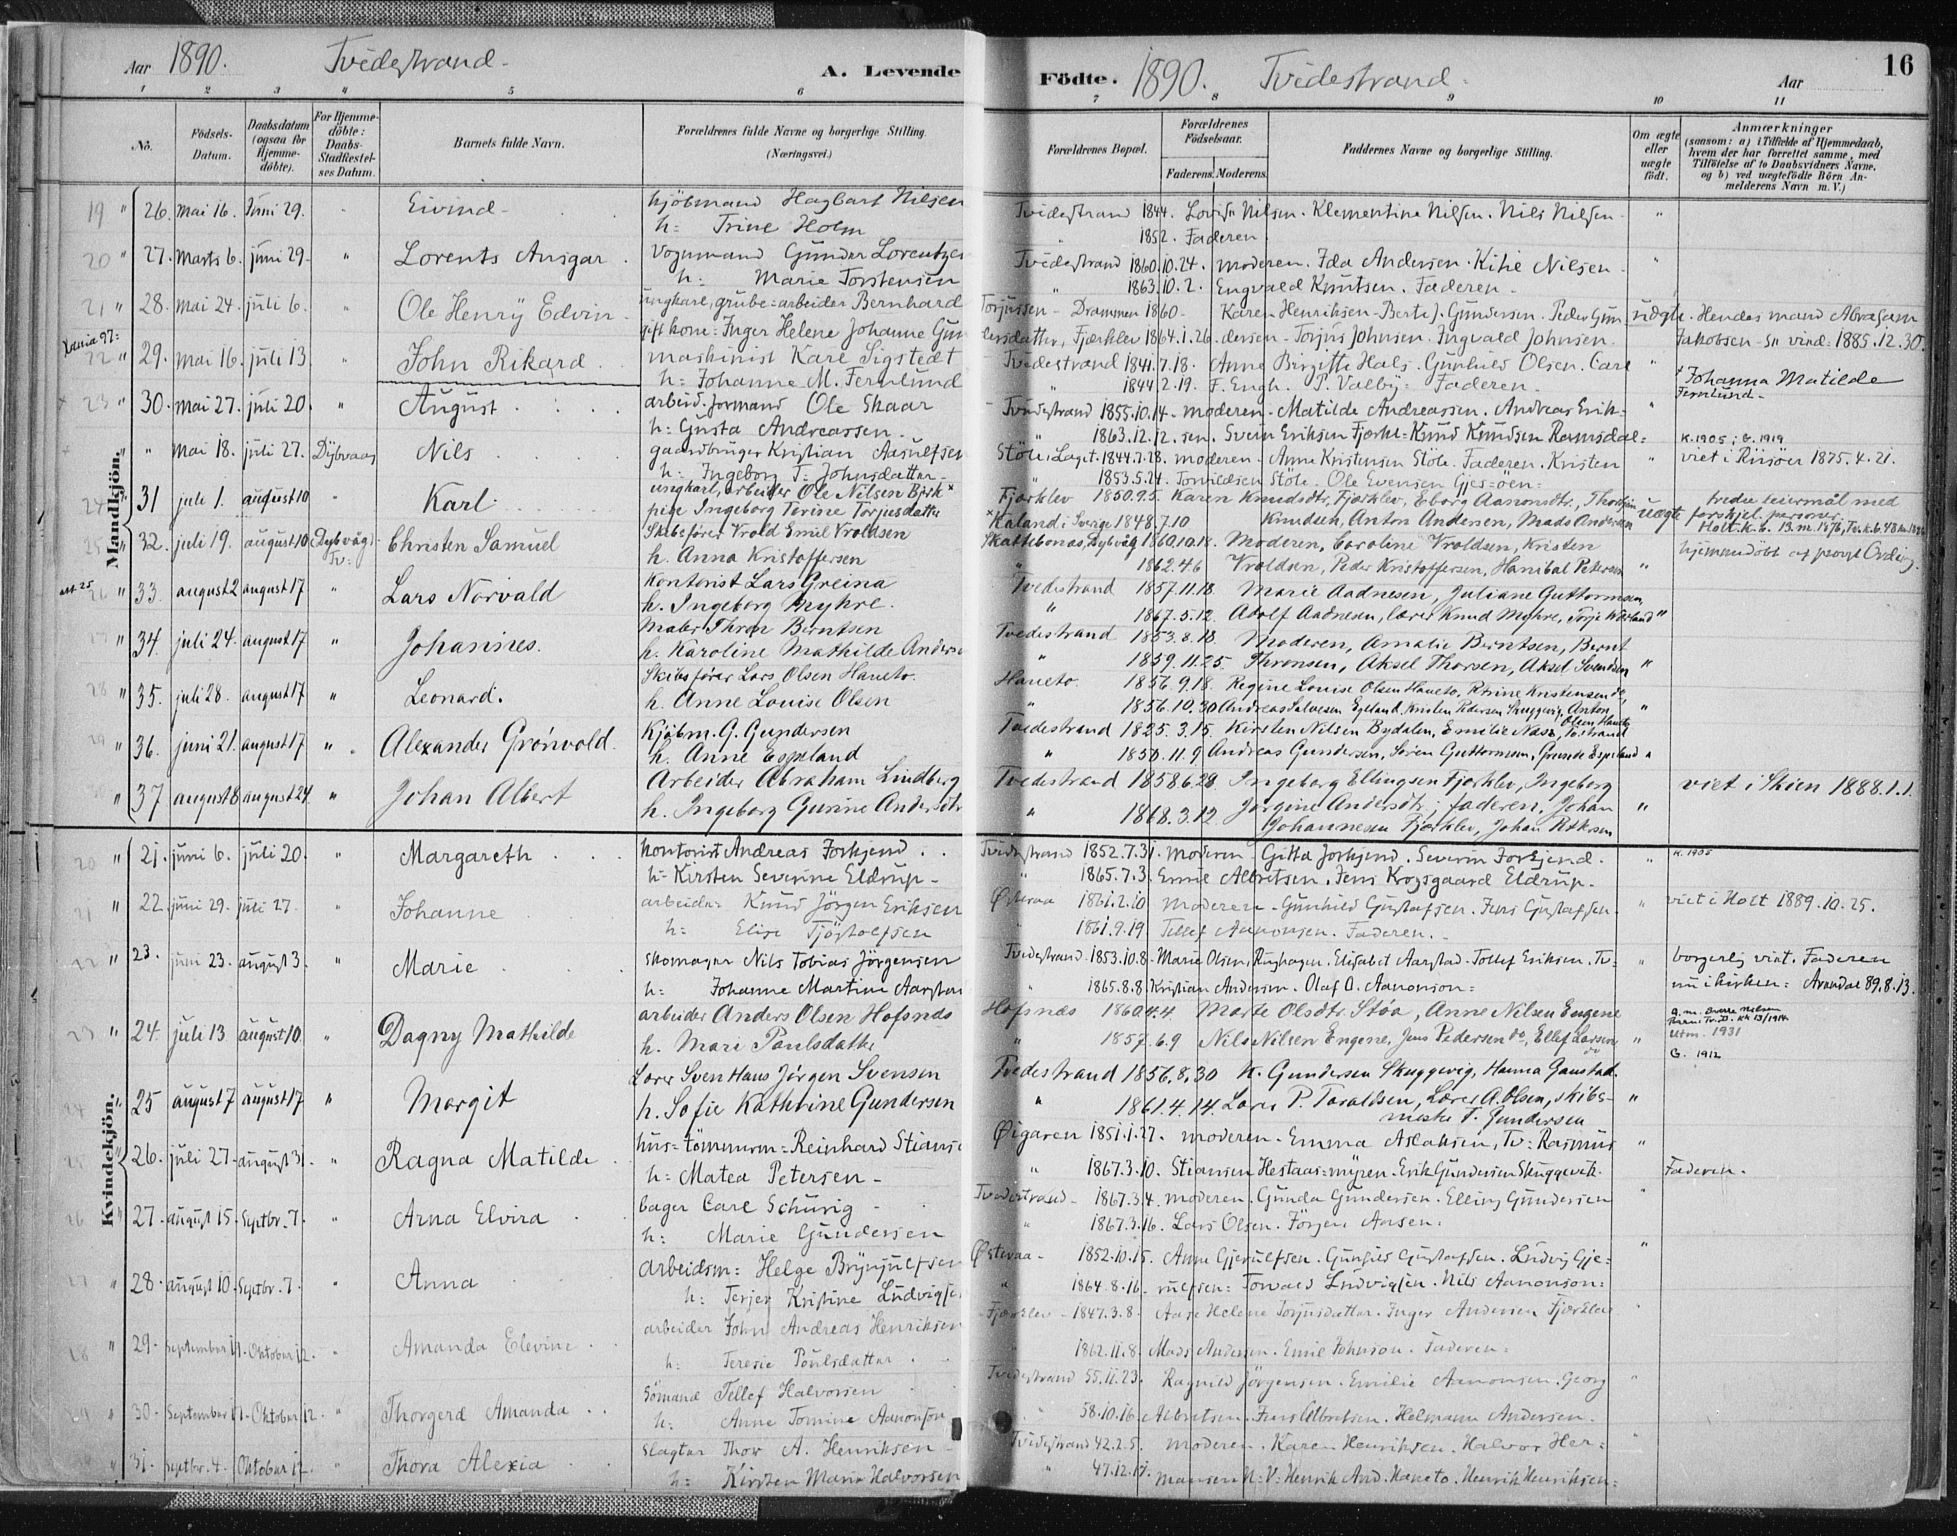 Aar 1890. Tvedestrand. A. Levende Födte. 1890. Tvedestrand. Aar 16
1 2 3 4 5 6 7 8 9 10 11
No. Födsels-Datum. Daabsdatum (ogsaa for Hjemme-döbte). For Hjemme-döbte: Daabs-Stadfæstel-ses Datum. Barnets fulde Navn. Forældrenes fulde Navne og borgerlige Stilling. (Næringsvei.) Forældrenes Bopæl. Forældrenes Födselsaar. Faderens. Moderens. Faddernes Navne og borgerlige Stilling. Om ægte eller uægte födt. Anmærkninger (saasom: a) i Tilfælde af Hjemmedaab, hvem der har forrettet samme, med Tilföielse af to Daabsvidners Navne, og b) ved uægtefödte Börn An-melderens Navn m. V.)
Mandkjön.
19 " 26. Mai 16. Juni 29. Eivind kjöbmand Hagbart Nilsen Tvedestrand 1844. Lovise Nilsen. Klementine Nilsen. Nils Nilsen "
h: Trine Holm " 1852. Faderen.
20 " 27. Marts 6. juni 29. " Lorents Ansgar. vognmand Gunder Lorentzen Tvedestrand 1860.10.24. moderen. Ida Andersen. Kitie Nilsen "
h: Marie Torstensen " 1863.10.2. Engvald Knutsen. Faderen.
21 " 28. Mai 24. juli 6. " Ole Henrÿ Edvin ungkarl, grube=arbeider Bernhard Torjussen - Drammen 1860 - Karen Henriksen - Berte J. Gundersen. Peder Gun uægte. Hendes mand Abraham
gift kone: Inger Helene Johanne Gundersdatter, Fjærklev 1864.1.26. dersen - Torjus Johnsen. Ingvald Johnsen. Jakobsen - sn vind: 1885.12.30.
22 " 29. Mai 16. juli 13. John Rikard. maskinist Karl Sigstedt Tvedestrand 1841.7.18. Anne Birgitte Hals. Gunhild Olsen. Carl "
h: Johanne M. Fernlund " 1844.2.19. F. Engh. P. Valbÿ: Faderen. Johanna Matilde Fernlund
23 " 30. mai 27. juli 20. " August. arbeid. formand Ole Skaar Tvedestrand 1855.10.14. moderen. Matilde Andreassen. Andreas Erik= "
h: Gusta Andreassen. " 1863.12.12. sen. Svein Eriksen Fjærkl= Knud Knudsen Ramsdal= K. 1905; G. 1919
" Mai 18. juli 27. Dÿbvaag Nils gaardbruger Kristian Aasulfsen Støle, Laget. 1844.7.28. moderen. Anne Kristensen Støle. Faderen. Kristen " viet i Riisøer 1875.4.21.
h: Ingeborg T= Johnsdatter " 1853.5.24. Torvildsen Støle. Ole Evensen Gjes=öen=
24 " 31 juli 1. august 10 " Karl ungkarl, arbeider Ole Nilsen Björk Fjærklev 1850.9.5. Karen Knudsdtr, Fjærklev, Eborg Aanonsdtr, uægte tredie leiermål med
pige Ingeborg Terine Torjusdatter Kaland i Sverige 1848.7.10 Knudsen, Anton Andersen, Mads Andersen forskjel. personer
25 " 32. juli 19. august 10 (Dybvåg) Tv: Christen Samuel Skibsfører Vrold Emil Vroldsen Skattebonæs, Dybvåg 1860.10.18. Moderen, Caroline Vroldsen, Kristen hjemmedöbt af provst
h. Anna Kristoffersen " 1862.4.6 Vroldsen, Peder Kristoffersen, Hanibal Petersen "
26 " 33. august 2 august 17 " Lars Norvald Kontorist Lars Greina Tvedestrand 1857.11.18 Marie Aadnesen, Juliane Guttormsen,
h. Ingeborg Myhre. " 1867.5.12 Adolf Aadnesen, lærer Knud Myhre, "
" 34. juli 24. august 17 " Johannes. Maler Thron Berntsen Tvedestrand 1853.8.18 Moderen, Amalie Berntsen, Bernt
h. Karoline Mathilde Anders " 1859.11.25. Thronsen, Aksel Thorsen, Aksel Svendsen "
28 " 35. juli 28. august 17 " Leonard. Skibsfører Lars Olsen Haneto. Haneto. 1856.9.18. Regine Louise Olsen Haneto, Kristensen do,
h. Anne Louise Olsen " 1856.10.30 Andreas Salvesen Egeland, Kristen Pedersen Skuggevig, Anton Olsen, Haneto "
29 " 36. juni 21. august 17 " Alexander Grönvold. Kjöbm. G. Gundersen Tvedestrand 1825.3.15. Kirsten Nilsen Bydalen, Emilie Næs,
h. Anne Espeland " 1850.11.9 Andreas Gundersen, Sören Guttormsen, Espeland "
" 37 august 8 august 24 " Johan Albert Arbeider Abraham Lindberg Tvedestrand 1858.6.28 Ingeborg Ellingsen Fjærklev, Ingeborg viet i Skien 1888.1.1.
h. Ingeborg Gurine Andersdtr " 1868.3.12 Jørgine Andersdtr; faderen, Johan "
Johannesen Fjærklev, Johan
Kvindekjön.
20 " 21. juni 6. juli 20. " Margareth. kontorist Andreas Forkjend. Tvedestrand 1852.7.31. moderen - Gitta Forkjend. Severin Forkjend. " K. 1905
h= Kirsten Severine Eldrup " 1865.7.3. Emil Albretsen. Jens Krogsgaard Eldrup.
21 " 22. juni 29. juli 27. " Johanne arbeider Knud Jörgen Eriksen Østeraa 1861.2.10 moderen. Gunhild Gustafsen. Jens Gustafsen. " viet i Holt 1889.10.25.
h: Elise Tjöstolfsen 1861.9.19 Tellef Aanonsen. Faderen.
22 " 23. juni 23. august 3. " Marie skomager Nils Tobias Jörgensen Tvedestrand 1853.10.8. Marie Olsen, Elisabet Aarstad. Tollef Eriksen. Tv= " borgerlig viet. Faderen
h: Johanne Martine Aarstad " 1865.8.8 Kristian Andersen. Olaf O. Aanonson= nu i kirken= Arendal 89.8.13.
23 " 24. juli 13 august 10. " Dagny Mathilde arbeider Anders Olsen Hofsnæs Hofsnæs 1860.4.4. Marte Olsdtr Støa, Anne Nilsen Engene
h. Mari Paulsdatter " 1857.6.9 Nils Nilsen Engene, Jens Pedersen do, Ellef Larsen do " Utm. 1931
24 " 25 august 7 august 17 " Margit Lærer Sven Hans Jörgen Svensen Tvedestrand 1856.8.30 K. Gundersen Skuggevig, Hanna Ganstad. G. 1912
h. Sofie Kathrine Gundersen " 1861.4.14 Lærer P. Taraldsen, Lærer A. Olsen, skibs- "
T. Gundersen
25 " 26. juli 27. august 31. " Ragna Matilde hus=tömmerm= Reinhard Stiansen Øigaren 1851.1.27. moderen. Emma Aslaksen, Tv: Rasmus "
h: Matea Petersen - " 1867.3.10. Stiansen Hestaas=mÿren. Erik Gundersen Skuggevik. Faderen.
26 " 27. august 15. Septbr. 7. " Arna Elvira bager Carl Schürig Tvedestrand - 1867.3.4. moderen. Gunda Gundersen. Elling Gundersen "
h: Marie Gundersen " 1867.3.16. Lars Olsen. Jörgen Aasen.
27 " 28. august 10. Septbr. 7. " Anna arbeidsm: Helge Brÿnjulfsen Østeraa - 1852.10.15. Anne Gjerulfsen. Gunhild Gustafsen. Ludvig Gje= "
h: Terjer Kristine Ludvigsen " 1864.8.16. rulfsen= Torvald Ludvigsen. Nils Aanonson=
28 29. September 11. Oktober 12. " Amanda Elevine arbeider John Andreas Henriksen Fjærklev - 1847.3.8. Aase Helene Torjusdatter. Inger Andersen Fjærklev "
h: Teresie Poulsdatter " 1862.11.8. Mads Andersen. Emil Johnson. Faderen=
30. September 11. Oktober 12. " Thorgerd Amanda sömand Tellef Halvorsen Tvedestrand 55.11.23. Ragnild Jörgensen. Emilie Aanonsen. Georg "
h: Anne Tomine Aanonsen " 58.10.16. Albretsen. Jens Albretsen. Helmann Andersen.
31. Septbr. 4. Oktober 12. " Thora Alexia slagter Thor A. Henriksen Tvedestrand 42.2.5. moderen. Karen Henriksen. Halvor Her= "
h: Kirsten Marie Halvorsen " 47.12.17. mansen N=V= Henrik And. Haneto. Henrik Henriksen=